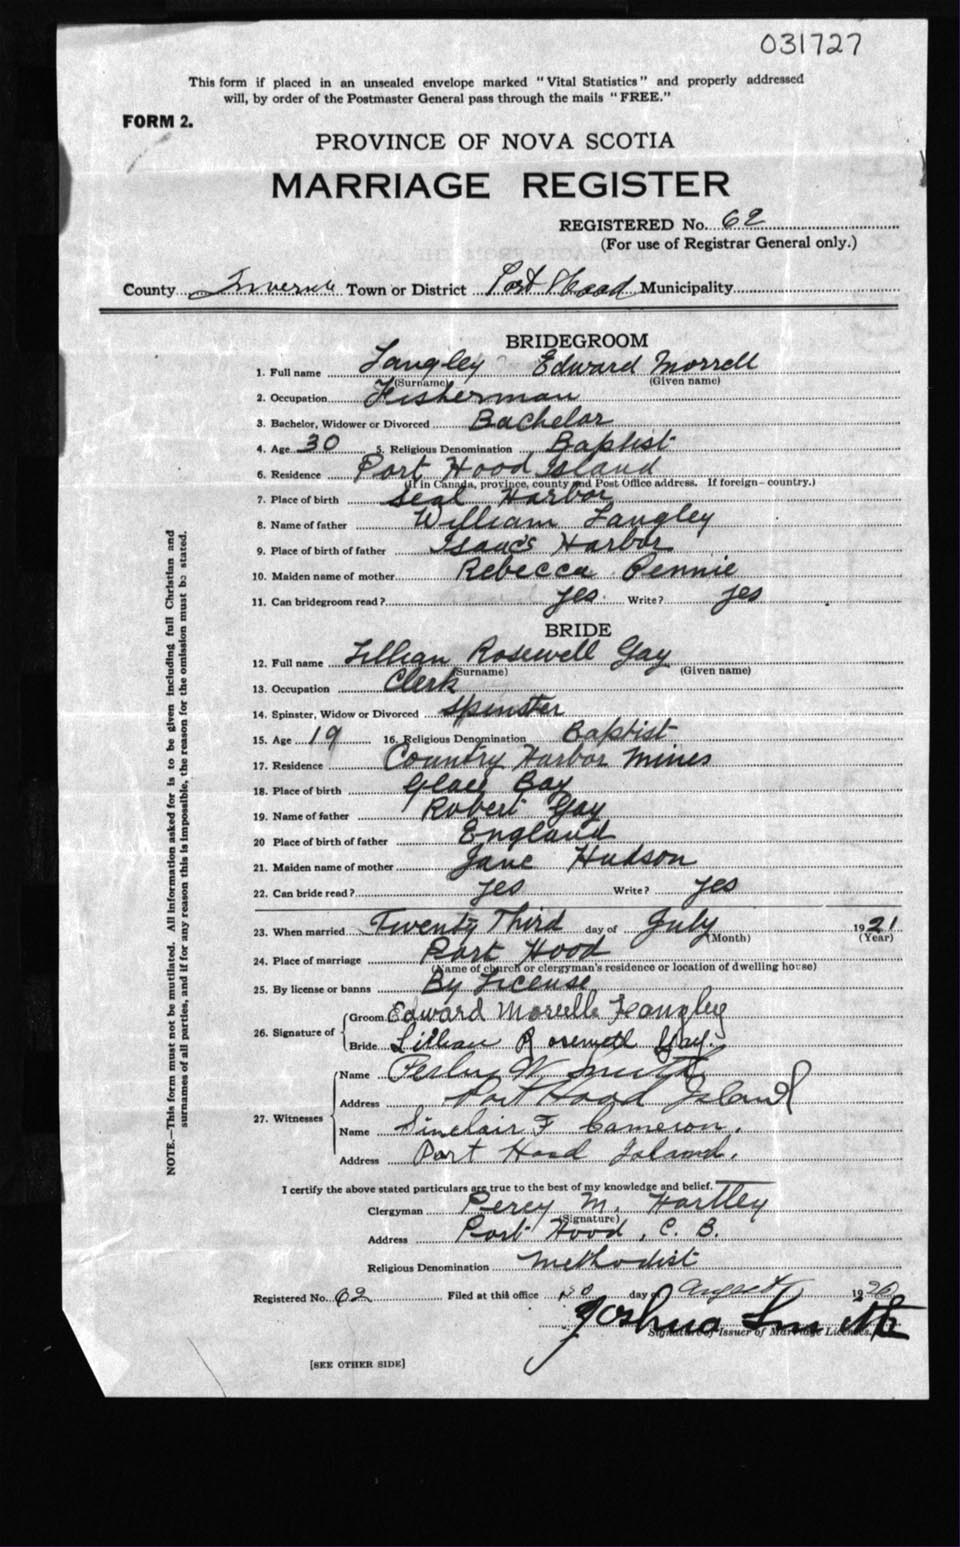 031727
This form if placed in an unsealed envelope marked "Vital Statistics" and properly addressed
will, by order of the Postmaster General pass through the mails "FREE."
FORM 2.
PROVINCE OF NOVA SCOTIA
MARRIAGE REGISTER
REGISTERED No. 62
(For use of Registrar General only.)
County Town or District Port Hood Municipality
BRIDEGROOM
1. Full name Langley Edward Morrell
(Surname) (Given name)
2. Occupation Fisherman
3. Bachelor, Widower or Divorced Bachelor
4. Age 30 5. Religious Denomination Baptist
6. Residence Port Hood Island
(If in Canada, province, county and Post Office address. If foreign—country.)
7. Place of birth Seal Harbor
8. Name of father William Langley
9. Place of birth of father Isaac's Harbor
10. Maiden name of mother Rebecca Rennie
11. Can bridegroom read? yes. Write? yes
BRIDE
12. Full name Lillian Rosewell Gay
(Surname) (Given name)
13. Occupation Clerk
14. Spinster, Widow or Divorced Spinster
15. Age 19 16. Religious Denomination Baptist
17. Residence Country Harbor Mines
18. Place of birth Glace Bay
19. Name of father Robert Gay
20 Place of birth of father England
21. Maiden name of mother Jane Hudson
22. Can bride read? yes Write? yes
23. When married Twenty Third day of July 1921
(Month) (Year)
24. Place of marriage Port Hood
(Name of church or clergyman's residence or location of dwelling house)
25. By license or banns By License
26. Signature of Groom Edward Morrell Langley
Bride Lillian Gay.
27. Witnesses Name W Smith
Address Port Hood Island
Name Sinclair F Cameron.
Address Port Hood Island.
I certify the above stated particulars are true to the best of my knowledge and belief.
Clergyman Percy M. Hartley
(Signature)
Address Port Hood, C. B.
Religious Denomination Methodist
Registered No. 62 Filed at this office day of August 19
Joshua Smith
Signature of Issuer of Marriage Licenses.
[SEE OTHER SIDE]
NOTE.—This form must not be mutilated. All information asked for is to be given including full Christian and
surnames of all parties, and if for any reason this is impossible, the reason for the omission must be stated.